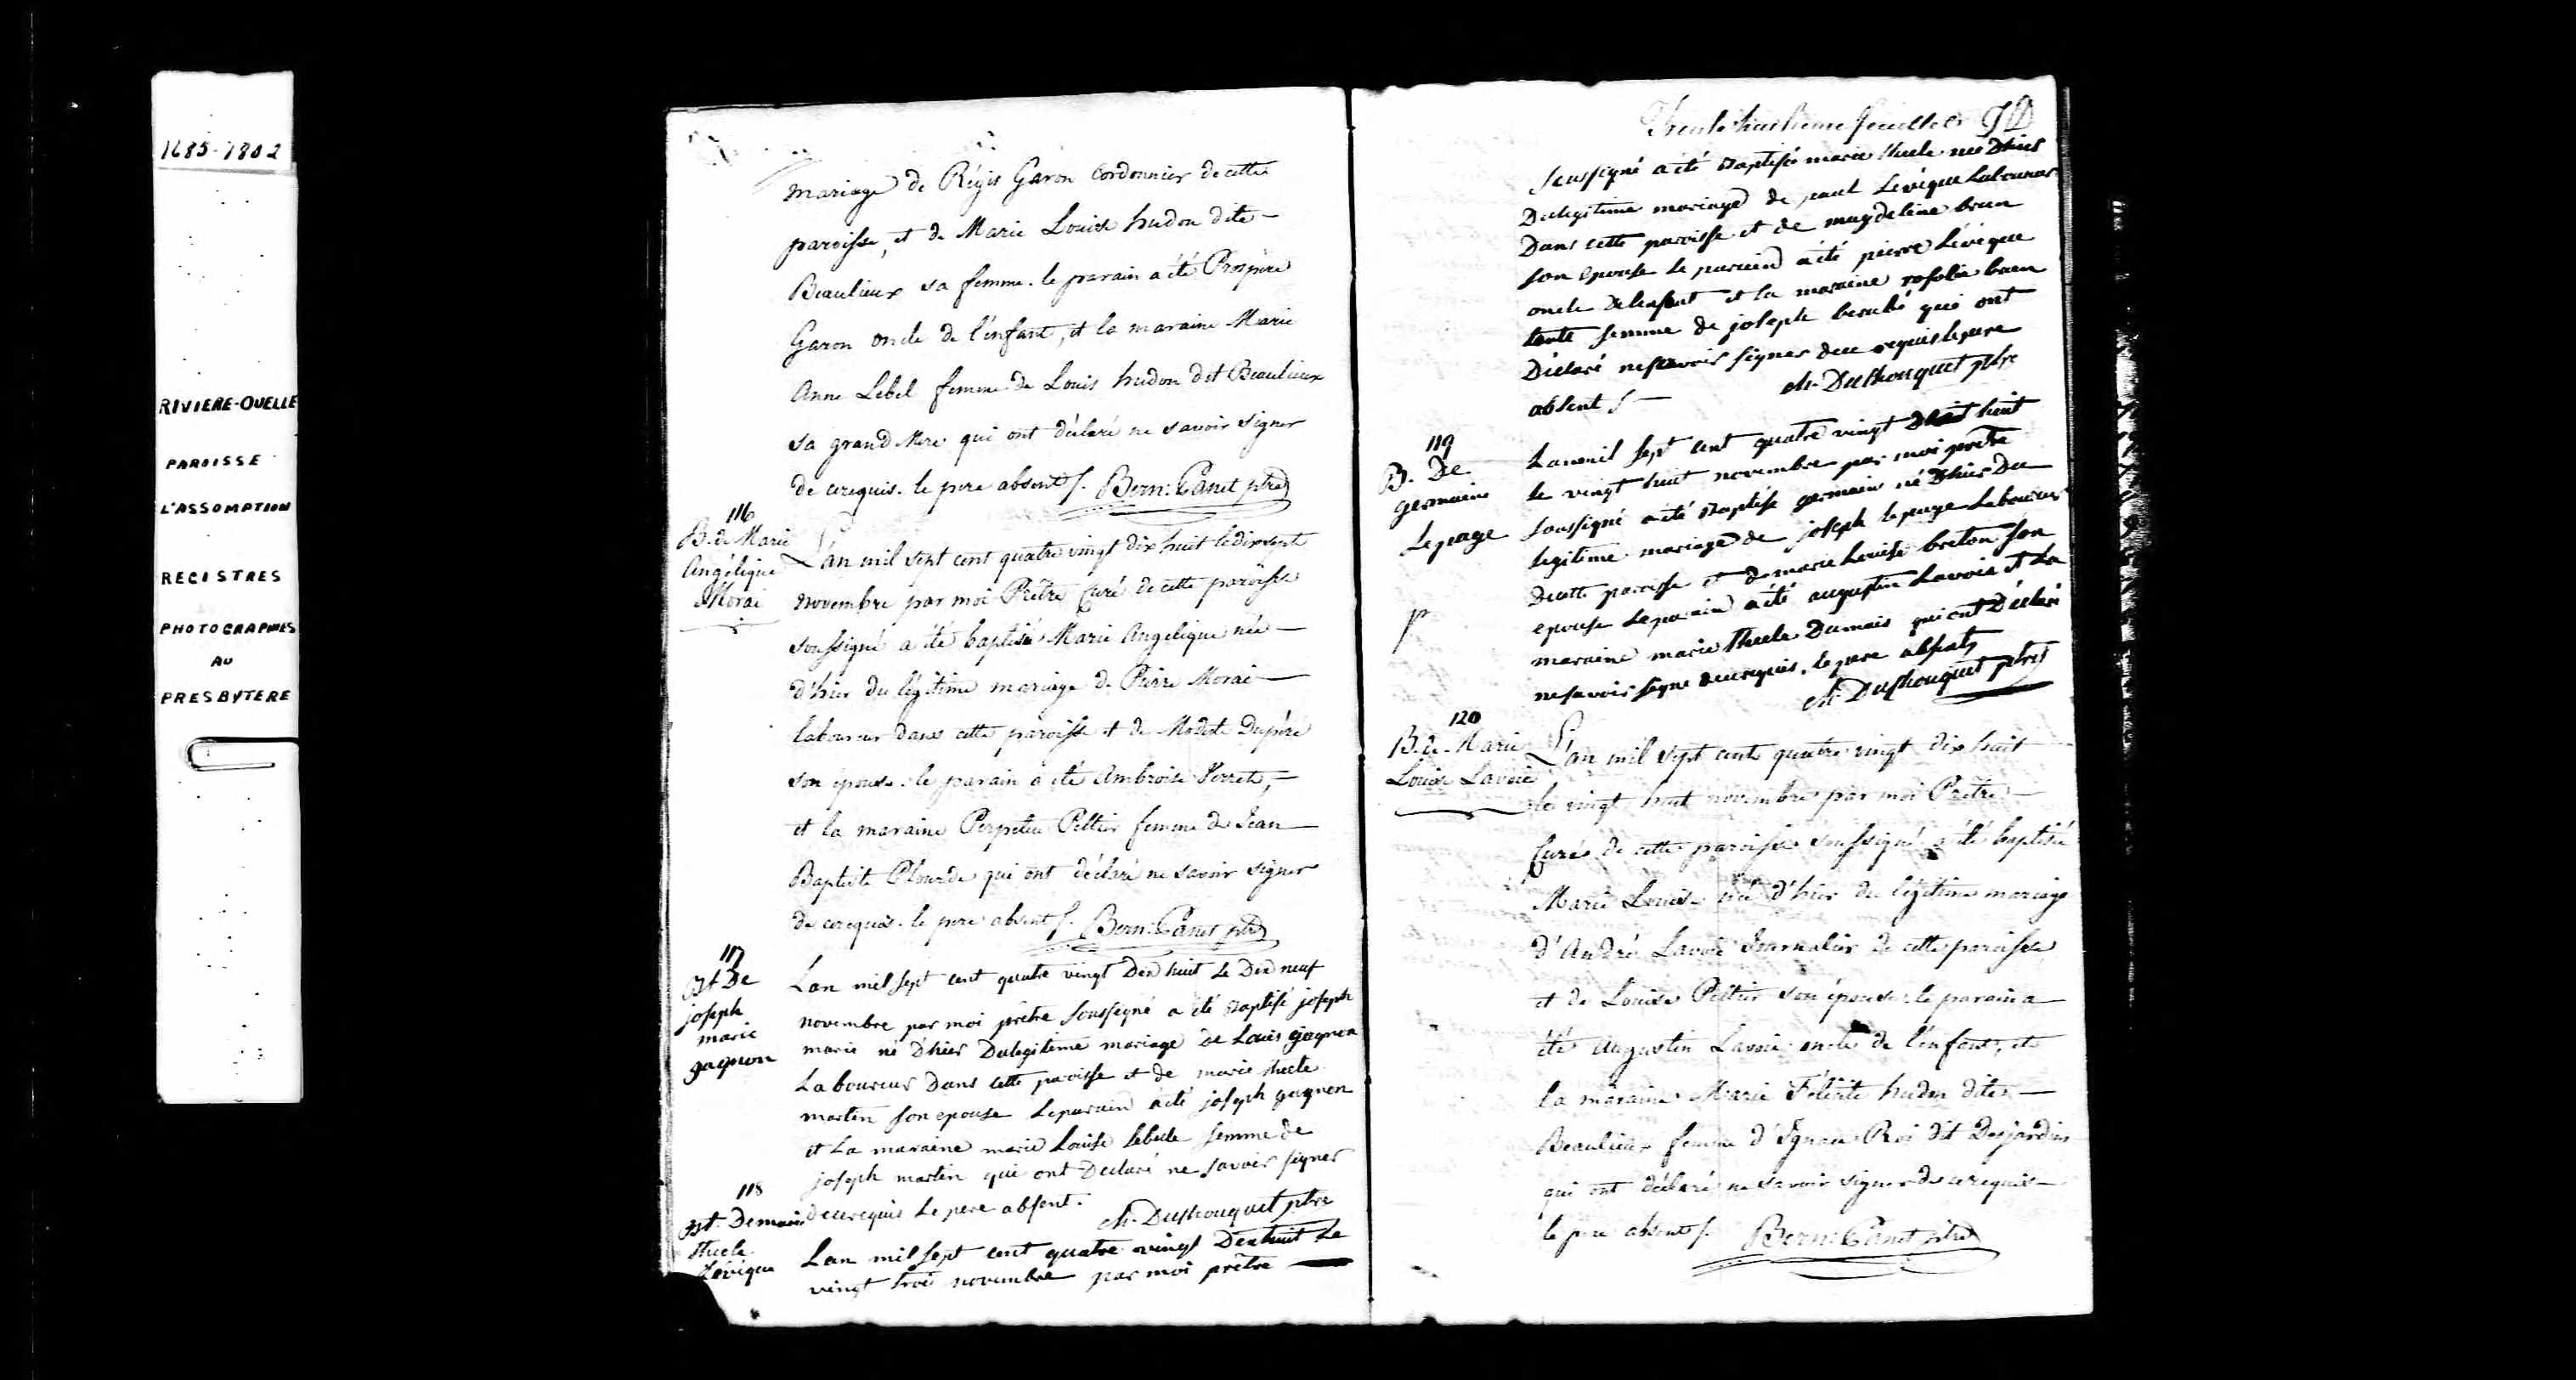 1685-1802
RIVIERE-OUELLE
PAROISSE
L'ASSOMPTION
REGISTRES
PHOTOGRAPHIES
AU
PRESBYTERE
mariage de Régis Garon Cordonnier de cette
paroisse, et de Marie Louise hudon dite
Beaulieux sa femme. le parain a été Prospère
Garon oncle de l'enfant, et la maraine Marie
Anne Lebel femme de Louis hudon dit Beaulieux
sa grand Mere qui ont déclaré ne savoir signer
de cerequis. le pere absent/. Bern: Panet ptre
116
B. de Marie
Angélique
Morai
L'an mil sept cent quatre vingt dix huit le dix sept
novembre par moi Prêtre Curé de cette paroisse
soussigné a été baptisée Marie Angelique née
d'hier du légitime mariage de Pierre Morai
laboureur dans cette paroisse et de Modeste Dupéré
son épouse. le parain a été Ambroise
et la maraine Perpetue Peltier femme de Jean
Baptiste Plourde qui ont déclaré ne savoir signer
de cerequis. le pere absent/. Bern: Panet ptre
117
Bt De
joseph
marie
gagnon
Lan mil sept cent quatre vingt Dix huit Le Dix neuf
novembre par moi prêtre soussigné a été Baptisé joseph
marie né Dhier Dulegitime mariage de Louis gagnon
Laboureur Dans cette paroisse et de marie thecle
martin son epouse Leparain a été joseph gagnon
et La maraine marie Louise lebele femme de
joseph martin qui ont Déclaré ne savoir signer
decerequis Le pere absent. ch. Duchouquet ptre
118
Bt. Demarie
thecle
Lévêque
Lan mil sept cent quatre vingt Dix huit Le
vingt trois novembre par moi prêtre
Trente huitieme feuillet
soussigné a été Baptisée marie thecle née Dhier
Dulegitime mariage de paul Levêque Laboureur
Dans cette paroisse et de magdeleine brun
son epouse le parain a été pierre Lévêque
oncle Delenfant et la maraine rosalie brun
tante femme de joseph berubé qui ont
Déclaré nesavoir signer dece requis lepere
absent/ ch. Duchouquet ptre
119
B. De
germain
Lepage
p
Lanmil sept cent quatre vingt huit
le vingt huit novembre par moi prêtre
soussigné a été Baptisé germain né Dhier Du
legitime mariage de joseph lepage Laboureur
Decette paroisse et de marie Louise breton son
epouse Leparain a été augustin Lavoie et La
maraine marie thecle Dumais qui ont Déclaré
nesavoir signer decerequis. le pere absent
ch. Duchouquet ptre
120
B. de Marie
Louise Lavoie
L'an mil sept cent quatre vingt dix huit
le vingt huit novembre par moi Prêtre
Curé de cette paroisse soussigné a été baptisée
Marie Louise née d'hier du légitime mariage
d'André Lavoie Journalier de cette paroisse
et de Louise Peltier son épouse. le parain a
été Augustin Lavoie oncle de l'enfant, et
la maraine Marie Félicité hudon dite
Beaulieux femme d'Ignace Roi dit Desjardins
qui ont déclaré ne savoir signer de cerequis
le pere absent/. Bern: Panet ptre